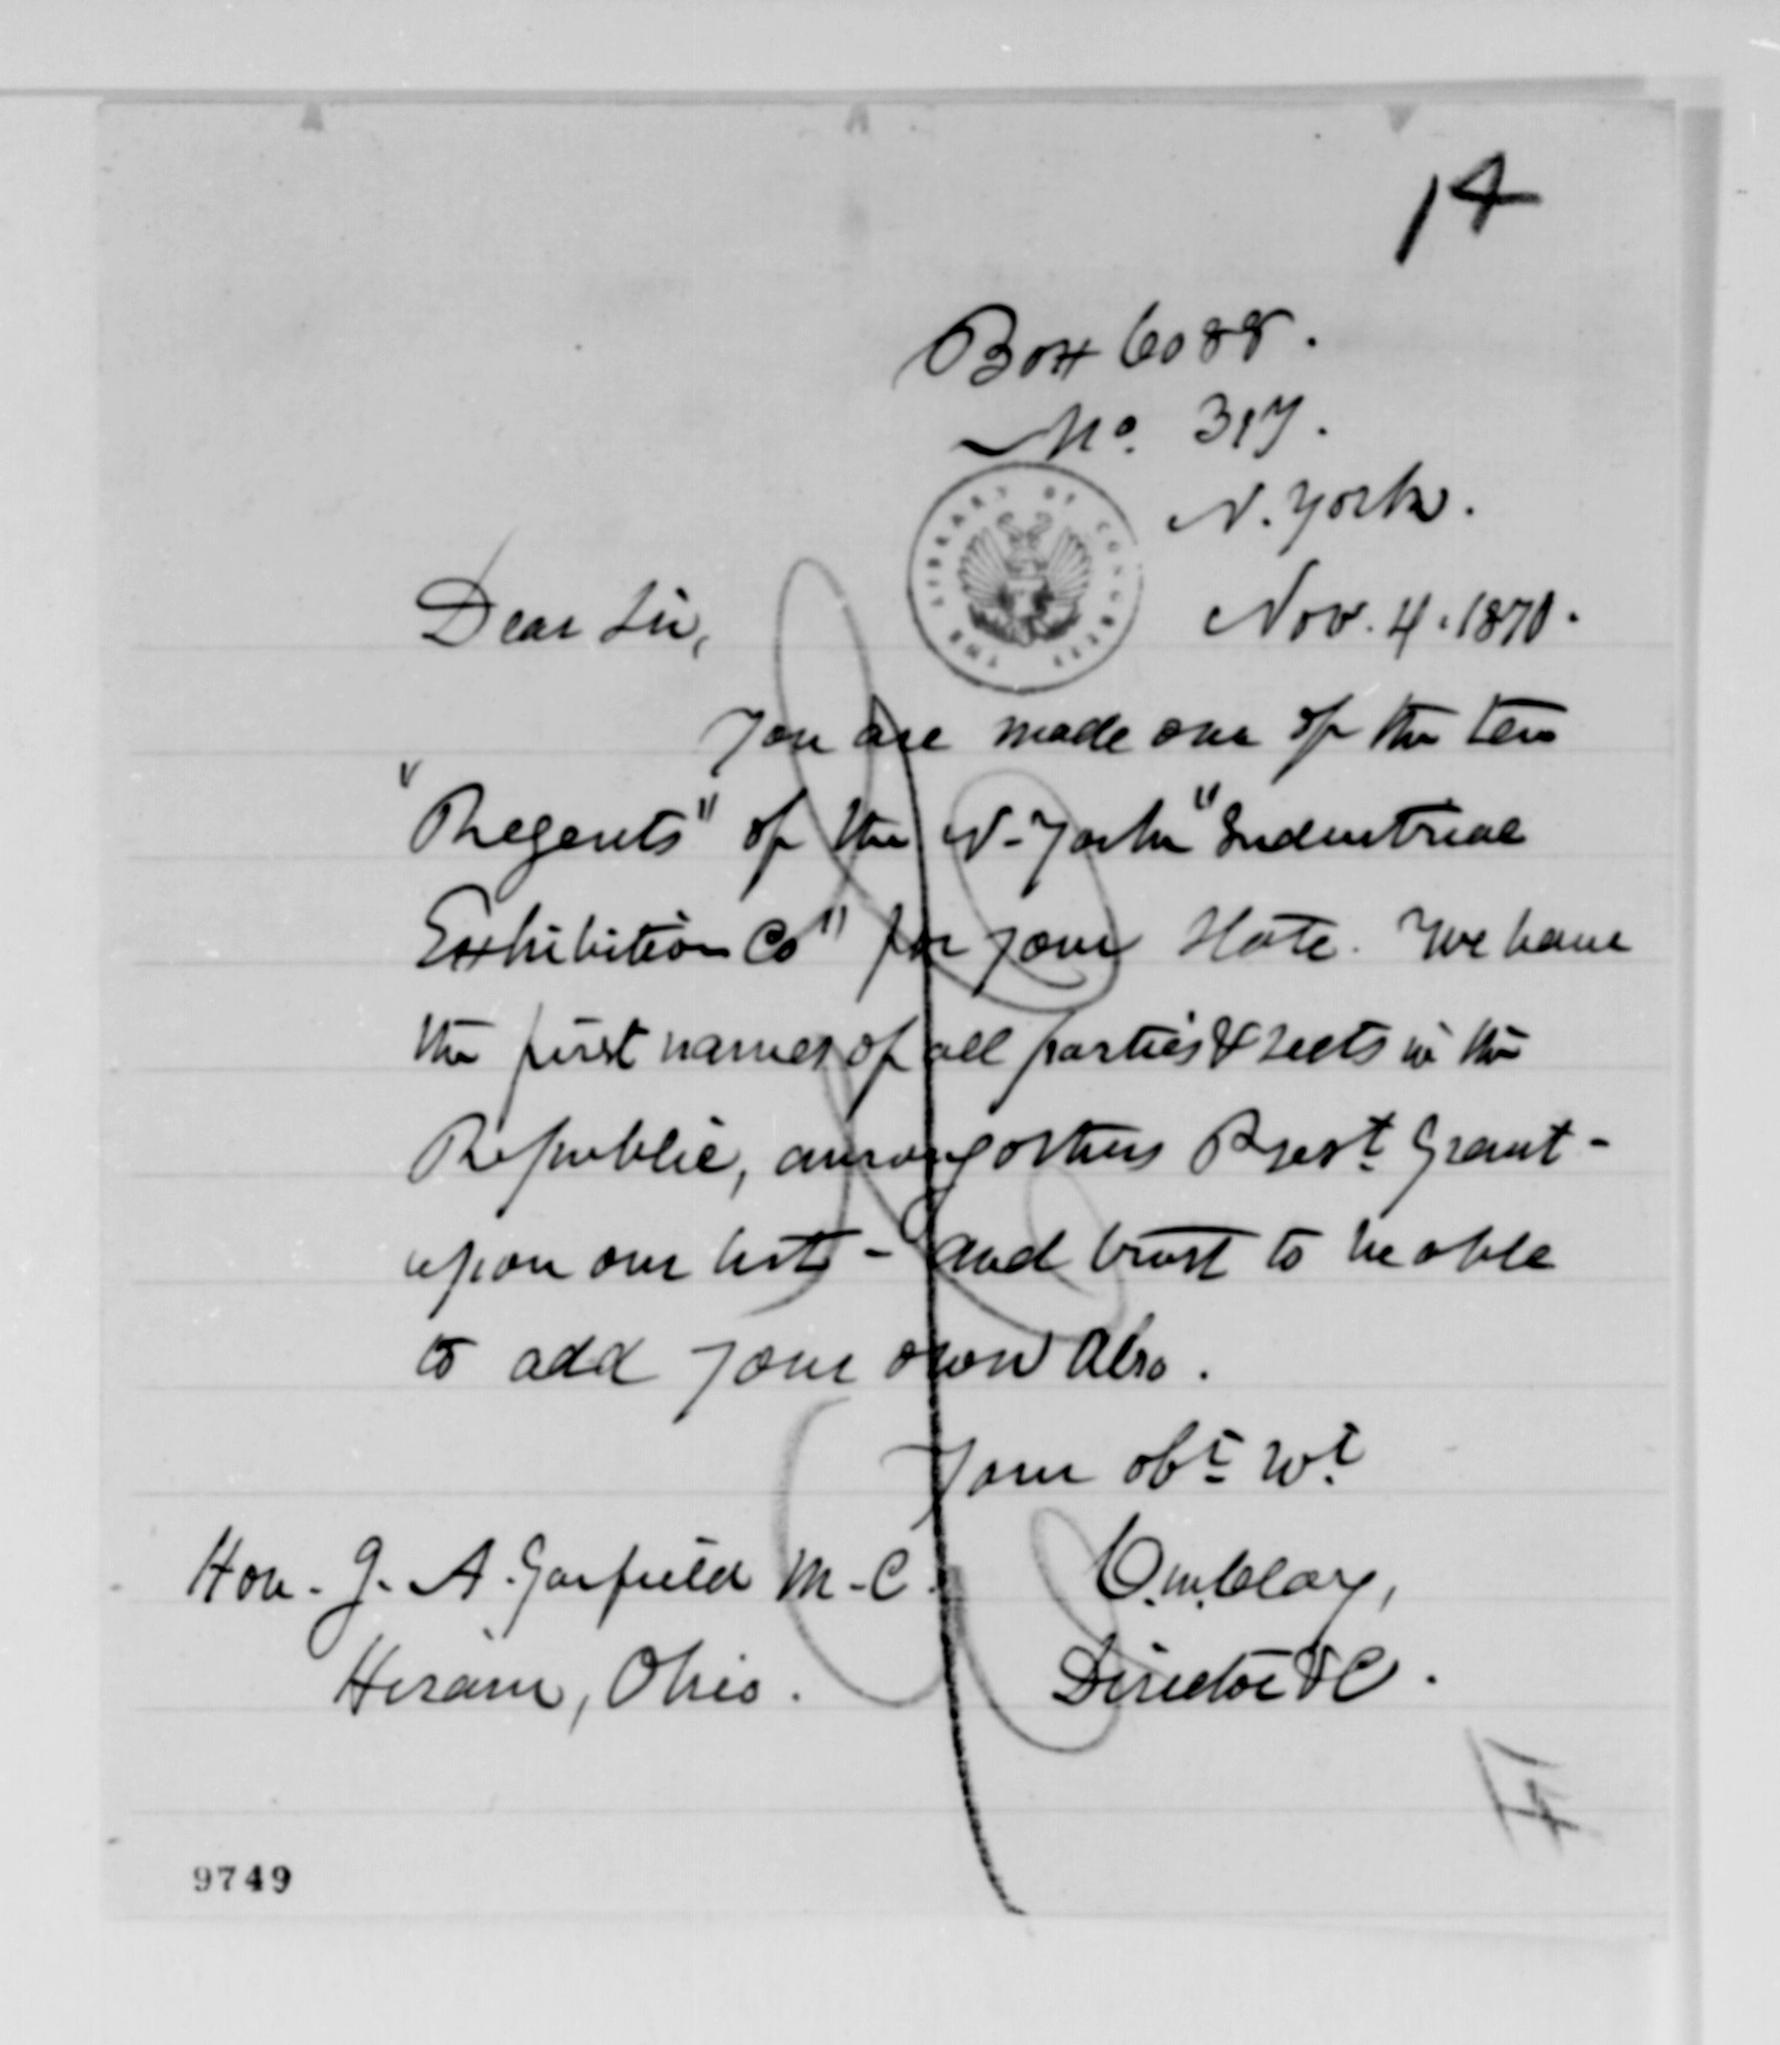 14
Box 6088.
No. 317.
N. York.
THE LIBRARY OF CONGRESS
Nov. 4. 1870.
Dear Sir,
You are made one of the ten
"Regents" of the N-York "Industrial
Exhibition Co" for your State. We have
the first names of all parties & sects in the
Republic, among others Prest. Grant -
upon our list - and trust to be able
to add your own also.
Your obt. svt.
Hon. J. A. Garfield M.C.
C.M. Clay,
Hiram, Ohio.
Director &C.
9749